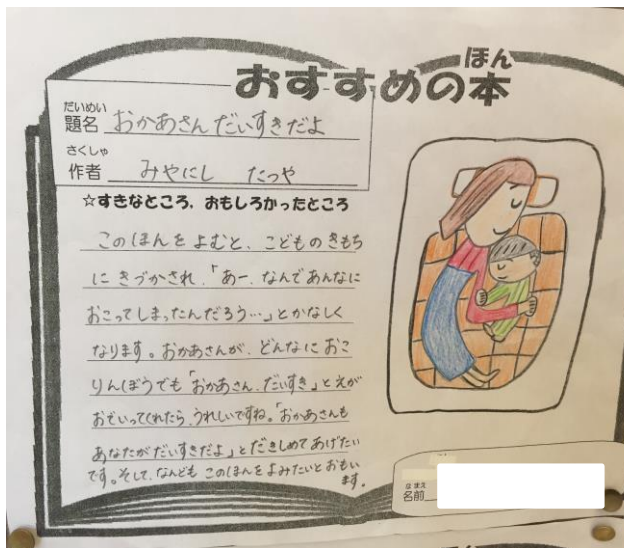 ほん
おすすめの本
だいめい
題名 おかあさんだいすきだよ
さくしゃ
作者 みやにし たつや
☆すきなところ、おもしろかったところ
このほんをよむと、こどものきもち
にきづかされ、「あー、なんであんなに
おこってしまったんだろう…」とかなしく
なります。おかあさんが、どんなにおこ
りんぼうでも「おかあさん、だいすき」とえが
おでいってくれたら、うれしいですね。「おかあさんも
あなたがだいすきだよ」とだきしめてあげたい
です。そして、なんども このほんをよみたいとおもい
ます。
なまえ
名前